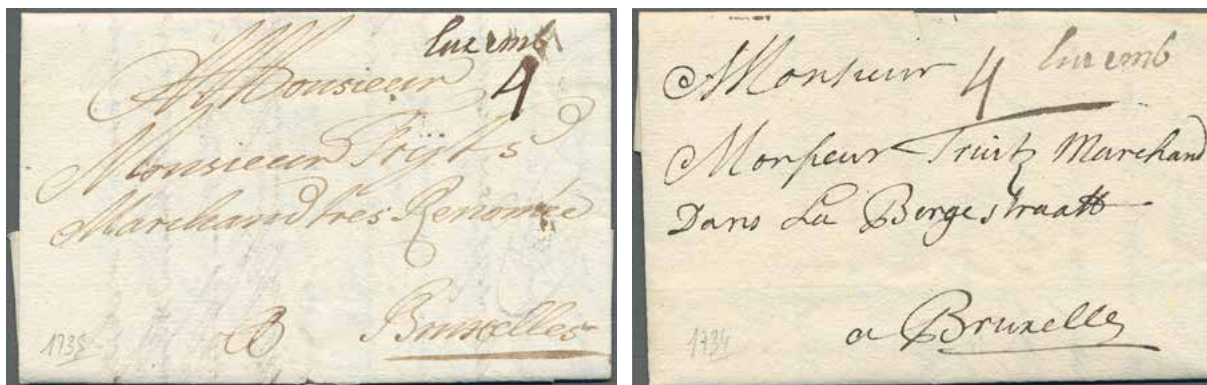 luxemb
Monsieur 4
Monsieur Trÿts
Marchand tres Renomèe
A Bruxelles
1735
Monsieur 4 luxemb
Monsieur Truitz Marchand
Dans La Bergestraatt
a Bruxelles
1734